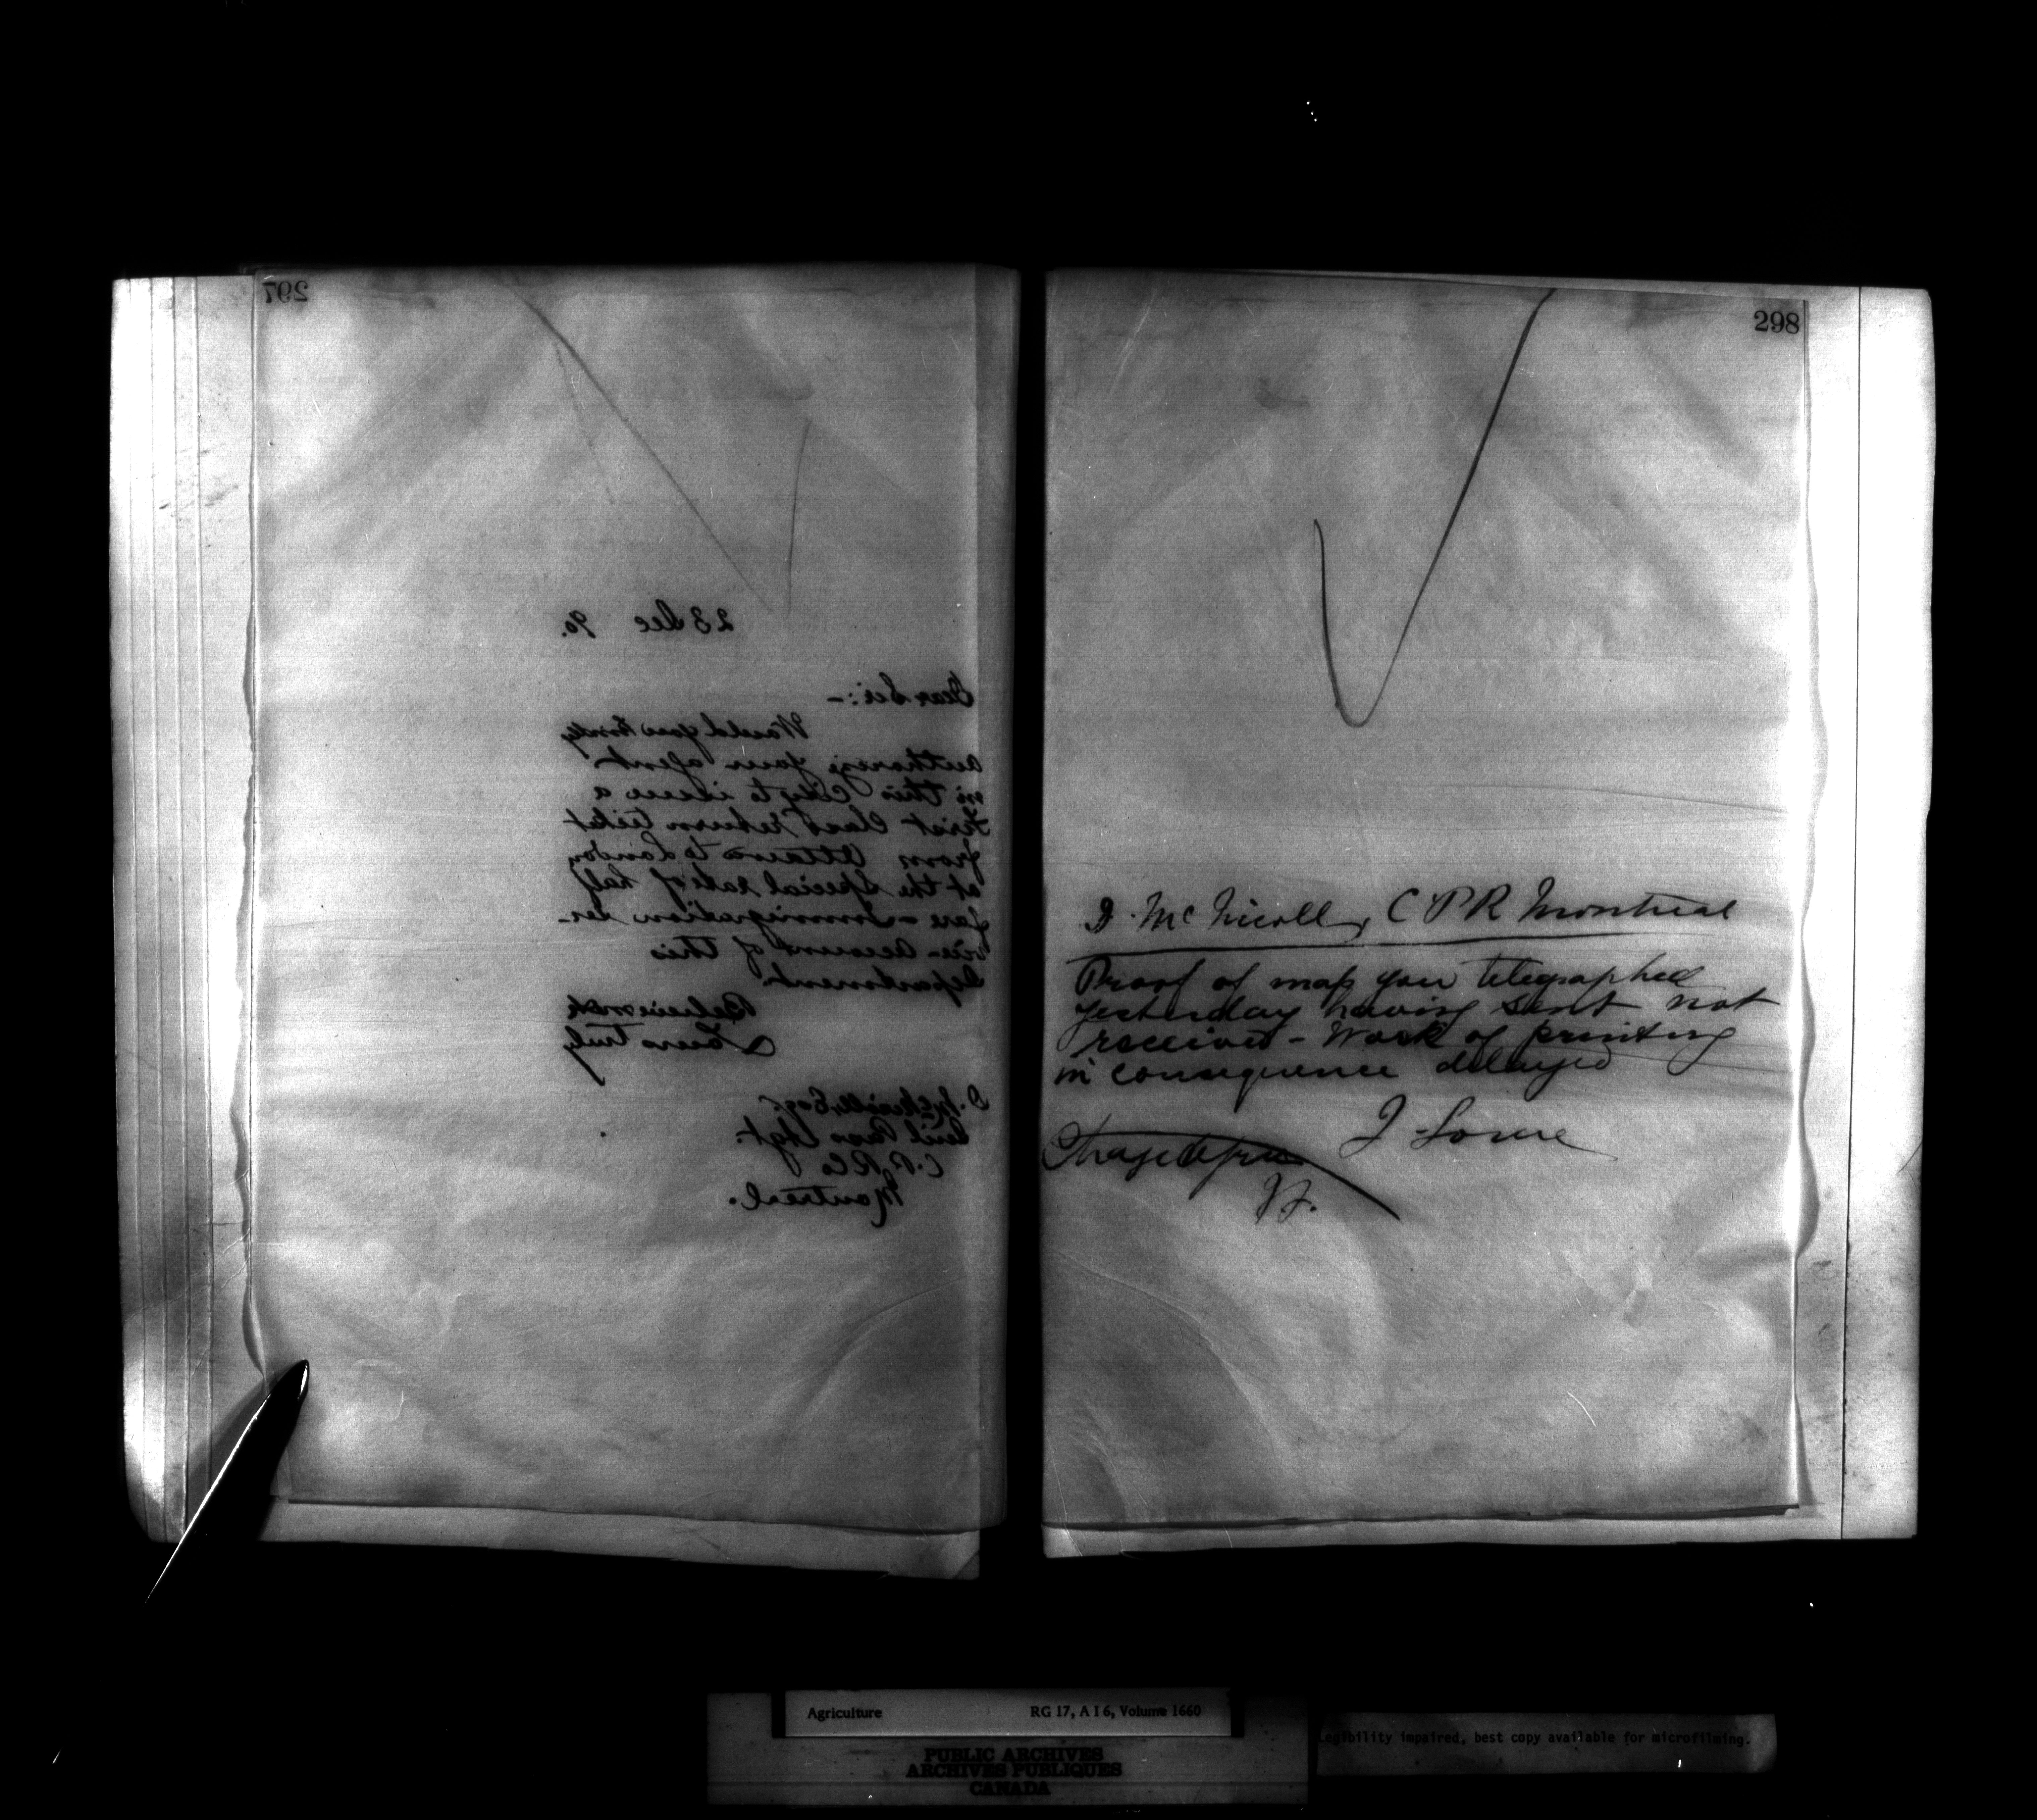 297
23 Dec 90.
Dear Sir:-
Would you kindly
authorize your agent
in this City to issue a
First Class return ticket
from Ottawa to London
at the Special rate of half
fare - Immigration Ser-
vice - account of this
Department.
Believe me
Yours truly
D. McNicoll, Esq.
Genl Pass Agt.
C. P. R Co
Montreal.
298
D. McNicoll, C P R Montreal
Proof of map you telegraphed
yesterday having sent not
received - Work of printing
in consequence delayed
J. Lowe
Charge Dpm
Agriculture RG 17, A I 6, Volume 1660
PUBLIC ARCHIVES
ARCHIVES PUBLIQUES
CANADA
Legibility impaired, best copy available for microfilming.